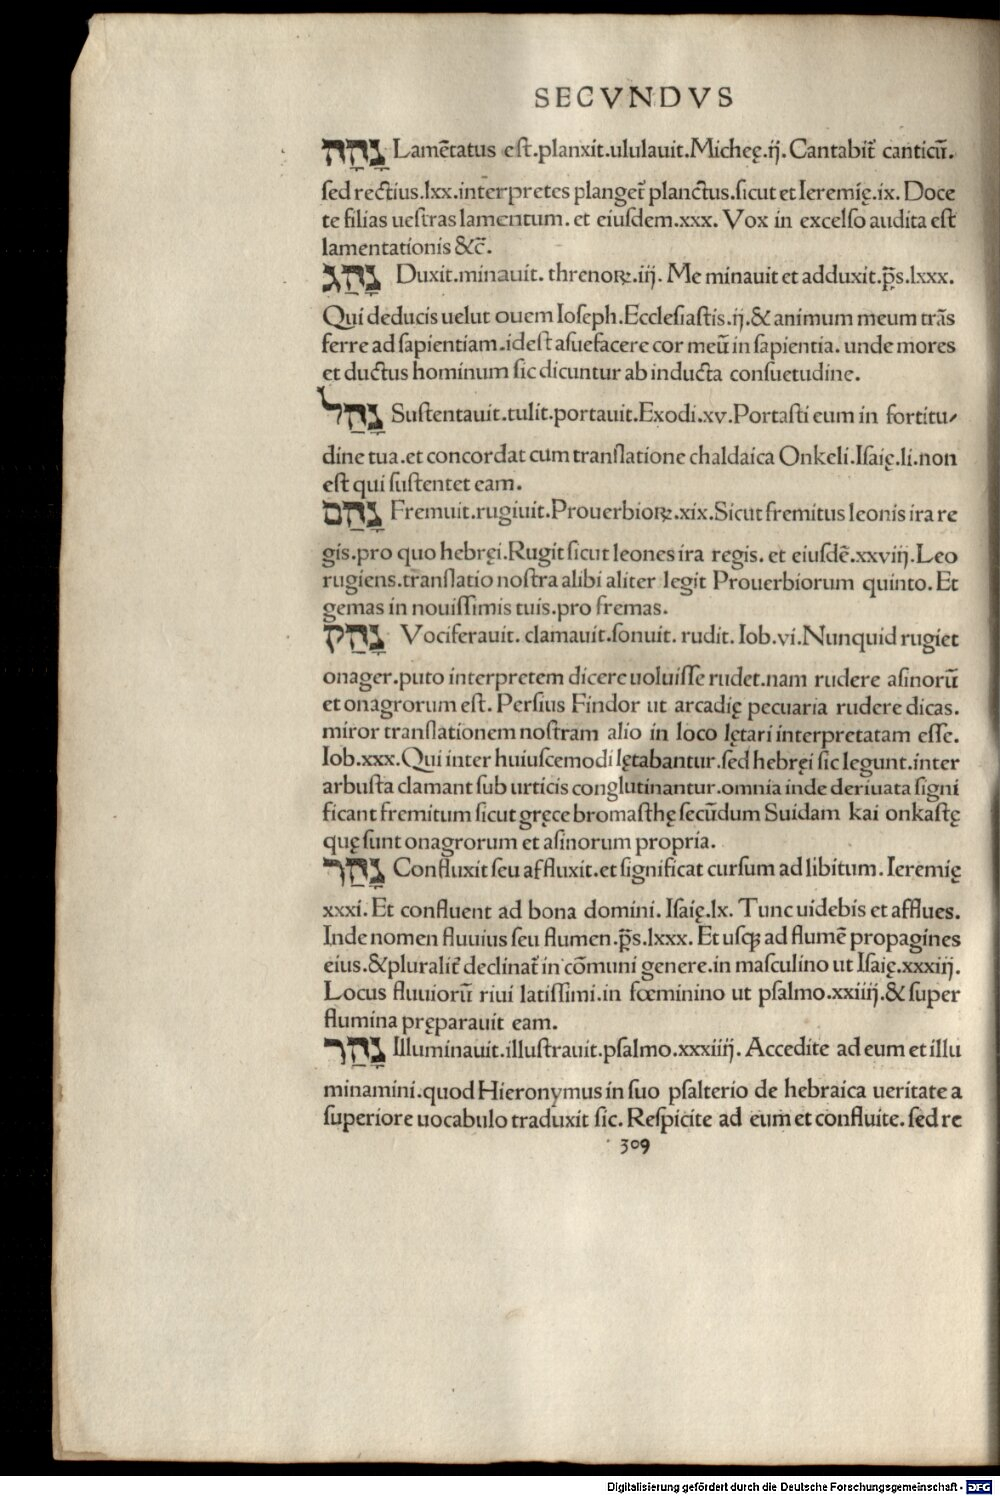 SECVNDVS
נָהָה Lamētatus eſt.planxit.ululauit.Micheę.ij.Cantabit̃ canticū.
ſed rectius.lxx.interpretes planget̃ planctus.ſicut et Ieremię.ix. Doce
te filias ueſtras lamentum. et eiuſdem.xxx. Vox in excelſo audita eſt
lamentationis &c̃.
נָהַג Duxit.minauit. threnoꝝ.iij. Me minauit et adduxit.p̃s.lxxx.
Qui deducis uelut ouem Ioſeph.Eccleſiaſtis.ij.& animum meum trãs
ferre ad ſapientiam.ideſt aſuefacere cor meū in ſapientia. unde mores
et ductus hominum ſic dicuntur ab inducta conſuetudine.
נָהַל Suſtentauit.tulit.portauit.Exodi.xv.Portaſti eum in fortitu⸗
dine tua.et concordat cum tranſlatione chaldaica Onkeli.Iſaię.li.non
eſt qui ſuſtentet eam.
נָהַם Fremuit.rugiuit.Prouerbioꝝ.xix.Sicut fremitus leonis ira re
gis.pro quo hebręi.Rugit ſicut leones ira regis. et eiuſdē.xxviij.Leo
rugiens.tranſlatio noſtra alibi aliter legit Prouerbiorum quinto. Et
gemas in nouiſſimis tuis.pro fremas.
נָהַק Vociferauit. clamauit.ſonuit. rudit. Iob.vi.Nunquid rugiet
onager.puto interpretem dicere uoluiſſe rudet.nam rudere aſinorū
et onagrorum eſt. Perſius Findor ut arcadię pecuaria rudere dicas.
miror tranſlationem noſtram alio in loco lętari interpretatam eſſe.
Iob.xxx.Qui inter huiuſcemodi lętabantur.ſed hebręi ſic legunt.inter
arbuſta clamant ſub urticis conglutinantur.omnia inde deriuata ſigni
ficant fremitum ſicut gręce bromaſthę ſecūdum Suidam kai onkaſtę
quę ſunt onagrorum et aſinorum propria.
נָהַר Confluxit ſeu affluxit.et ſignificat curſum ad libitum. Ieremię
xxxi. Et confluent ad bona domini. Iſaię.lx. Tunc uidebis et afflues.
Inde nomen fluuius ſeu flumen.p̃s.lxxx. Et uſqꝫ ad flumē propagines
eius.&pluralit̃ declinat̃ in cōmuni genere.in maſculino ut Iſaię.xxxiij.
Locus fluuiorū riui latiſſimi.in fœminino ut pſalmo.xxiiij.& ſuper
flumina pręparauit eam.
נָהַר Illuminauit.illuſtrauit.pſalmo.xxxiiij. Accedite ad eum et illu
minamini.quod Hieronymus in ſuo pſalterio de hebraica ueritate a
ſuperiore uocabulo traduxit ſic. Reſpicite ad eum et confluite. ſed re
309
Digitalisierung gefördert durch die Deutsche Forschungsgemeinschaft - DFG